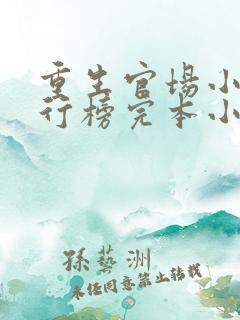 重生官场小
行榜完本小
孫藝洲
未经同意禁止转载